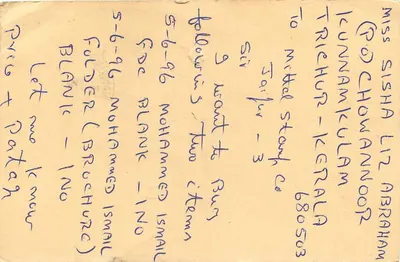 MISS SISHA LIZ ABRAHAM
(PO) CHOWANNOOR
KUNNAMKULAM
TRICHUR - KERALA
680503
To Mittal Stamp Co
Jaipur - 3
Sir
I want to Buy
following two items
5-6-96 MOHAMMED ISMAIL
FDC BLANK - 1NO
5-6-96 MOHAMMED ISMAIL
FOLDER (BROCHURE)
BLANK - 1NO
Let me know
Price +